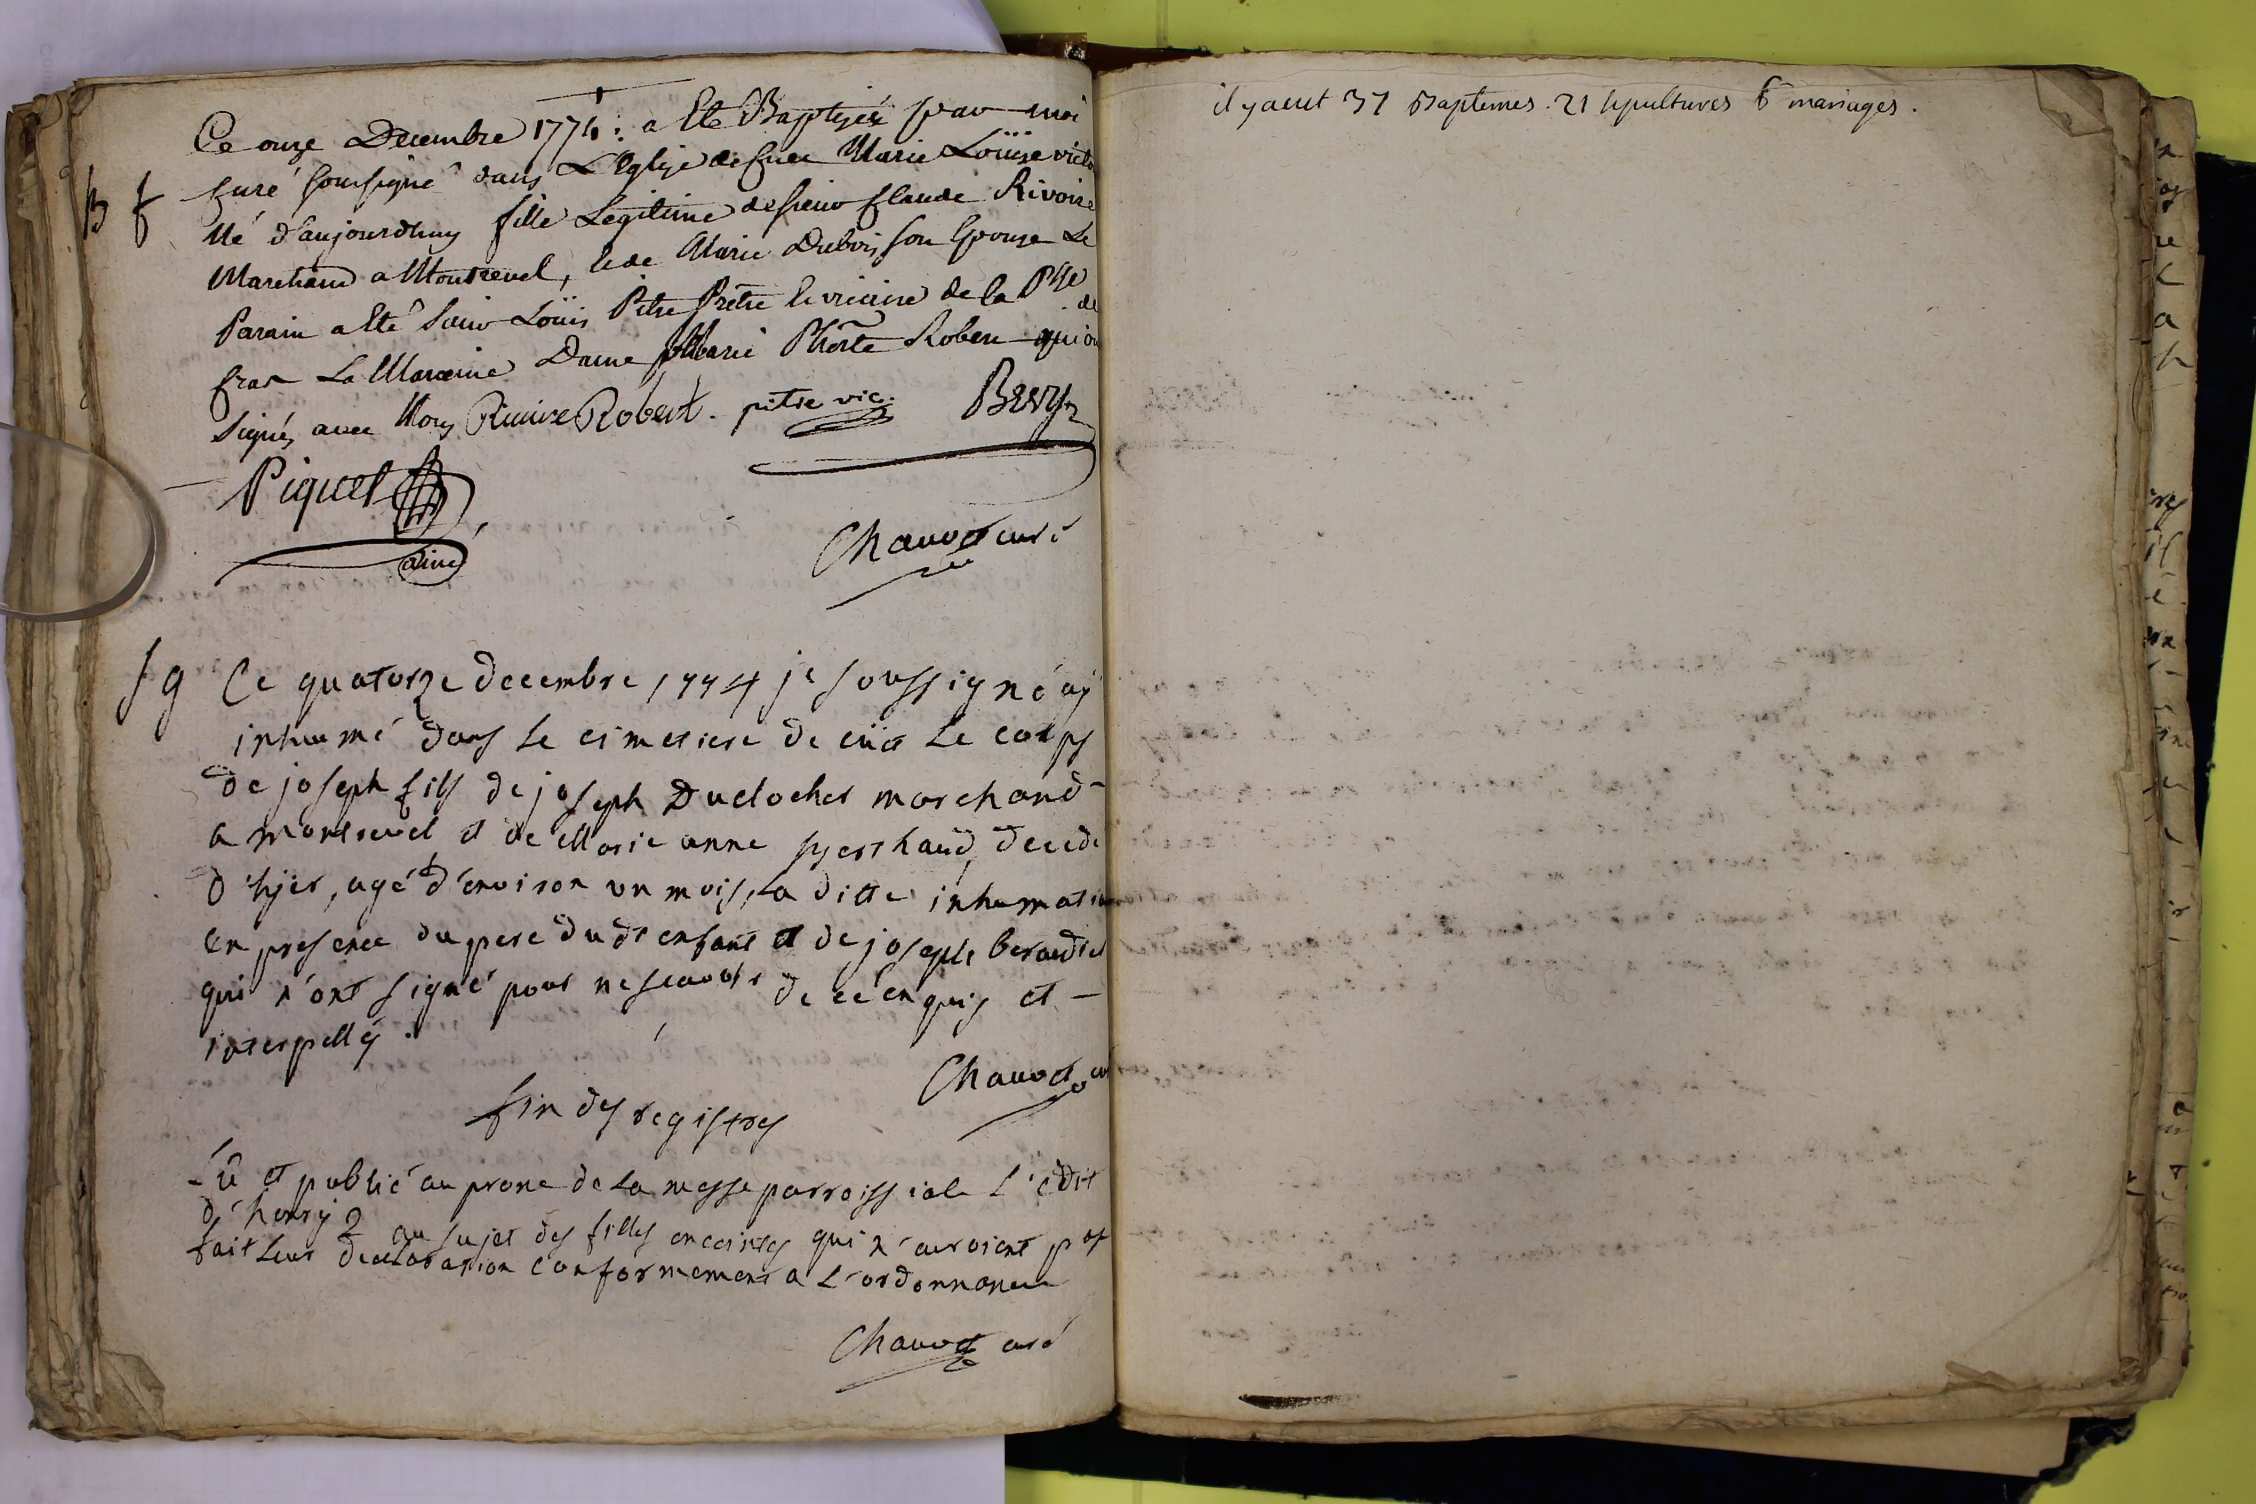 Ce onze Decembre 1774: a Eté Baptisée par moi
B f Curé Soussigné dans L'Eglise de Cuet Marie Louise victo
Né d'aujourdhuy fille Legitime de sieur Claude Rivoire
Marchand a Montrevel, et de Marie Dubois son Epouse Le
Parain a Eté Sieur Louis Pitre Prêtre Et vicaire de la Psse
de
Cras La Maraine Dame Marie Robert qui on
Signés avec Nous Riuire Robert. pitre vic. Brevy
Piquet
ainé
Chauvet curé
Sg Ce quatorze decembre 1774 je soussigné ay
inhumé dans le cimetiere de cüet Le corps
de joseph fils de joseph Duclocher marchand
a montrevel et de Marie anne decedé
d'hjer, agé d'environ un mois, La ditte inhumation
en presence du pere du dt enfant et de joseph beraudet
qui n'ont signé pour ne scavoir de ce enquis et
interpellés.
Chauvet cu
fin des registres
Lû et publié au prone de La messe parroissiale L'edit
d'henrÿ 2 au sujet des filles enceintes qui n'auroient pas
fait leur declaration conformement a L'ordonnance
Chauvet curé
il y a eut 37 Baptemes. 21 sepultures 6 mariages.